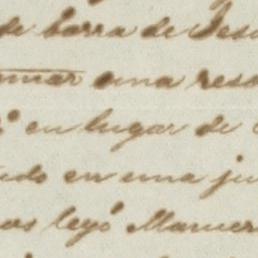 de barra de Jes
una reso
en lugar de
ndo en una ju
os leyó Manue